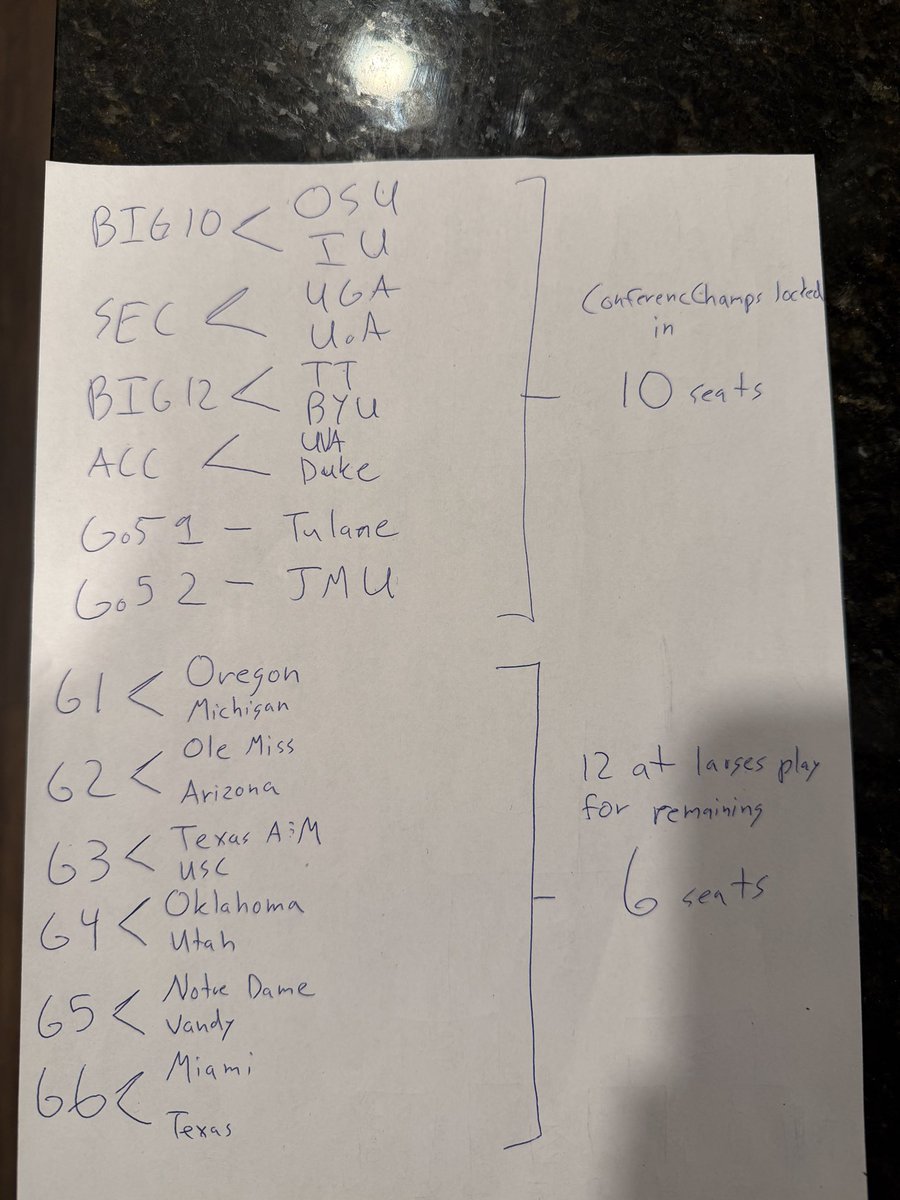 BIG 10 < OSU
IU
SEC < UGA
U.A
BIG 12 < TT
BYU
ACC < UVA
Duke
Go5 1 - Tulane
Go5 2 - JMU
ConferencChamps locked
in
10 seats
G1 < Oregon
Michigan
G2 < Ole Miss
Arizona
G3 < Texas A&M
USC
G4 < Oklahoma
Utah
G5 < Notre Dame
Vandy
G6 < Miami
Texas
12 at larges play
for remaining
6 seats